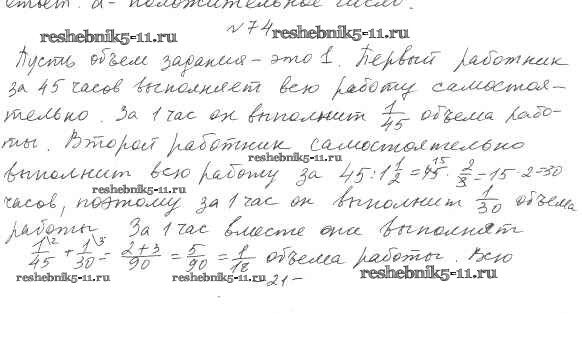 ответ. а- положительное число.
№ 74
reshebnik5-11.ru reshebnik5-11.ru
Пусть объем задания - это 1. Первый работник
за 45 часов выполняет всю работу самостоя-
тельно. За 1 час он выполнит 1/45 объема рабо-
ты. Второй работник самостоятельно
reshebnik5-11.ru
выполнит всю работу за 45:1 1/2 = 45 15 · 2/3 = 15·2=30
reshebnik5-11.ru
часов, поэтому за 1 час он выполнит 1/30 объема
работы. За 1 час вместе они выполняют
1\2/45 + 1\3/30 = 2+3/90 = 5/90 = 1/18 объема работы. Всю
reshebnik5-11.ru reshebnik5-11.ru reshebnik5-11.ru
-21-